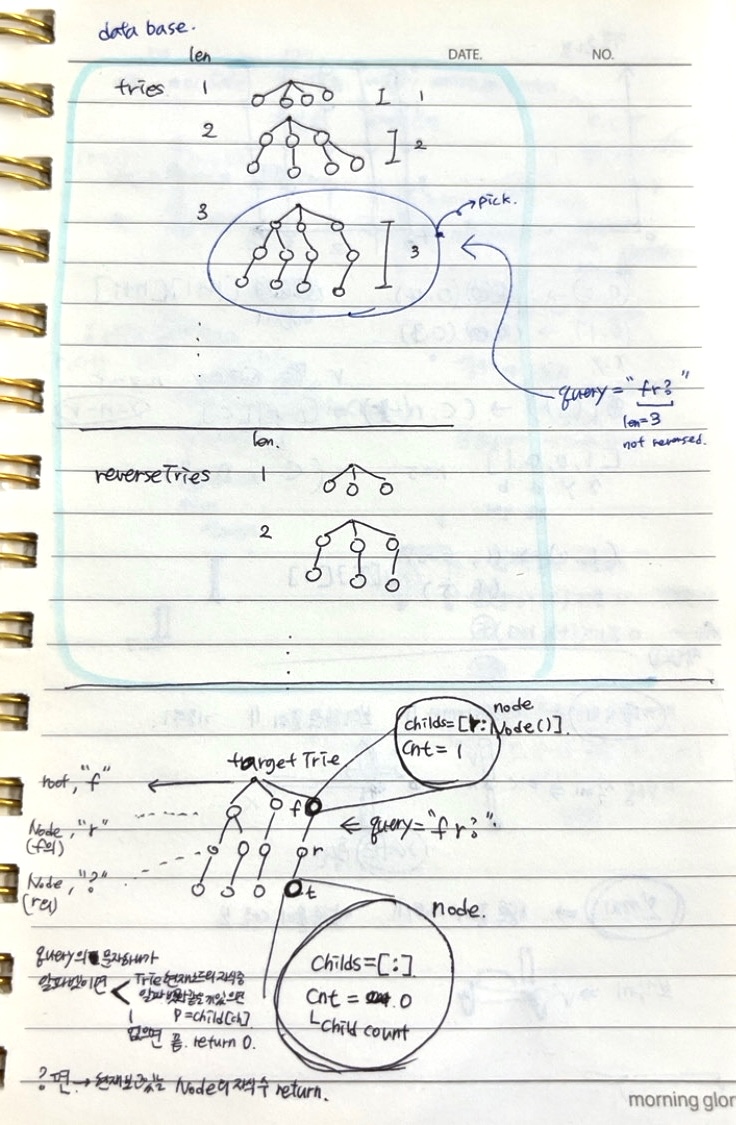 data base.
len
DATE.
NO.
tries 1
1
2
2
3
3
pick.
query="fr?"
len=3
not reversed.
len.
reverseTries 1
2
node
childs=[r:Node()].
Cnt = 1
target Trie
root, "f"
f
Node, "r"
(f의)
query="fr?".
r
Node, "?"
(r의)
t
node.
Childs=[:]
Cnt = 0
child count
query의 문자하나가
알파벳이면
Trie 현재노드의 자식중
P=child[ch]
없으면 끝. return 0.
?면→현재보고있는 Node의 자식수 return.
morning glor